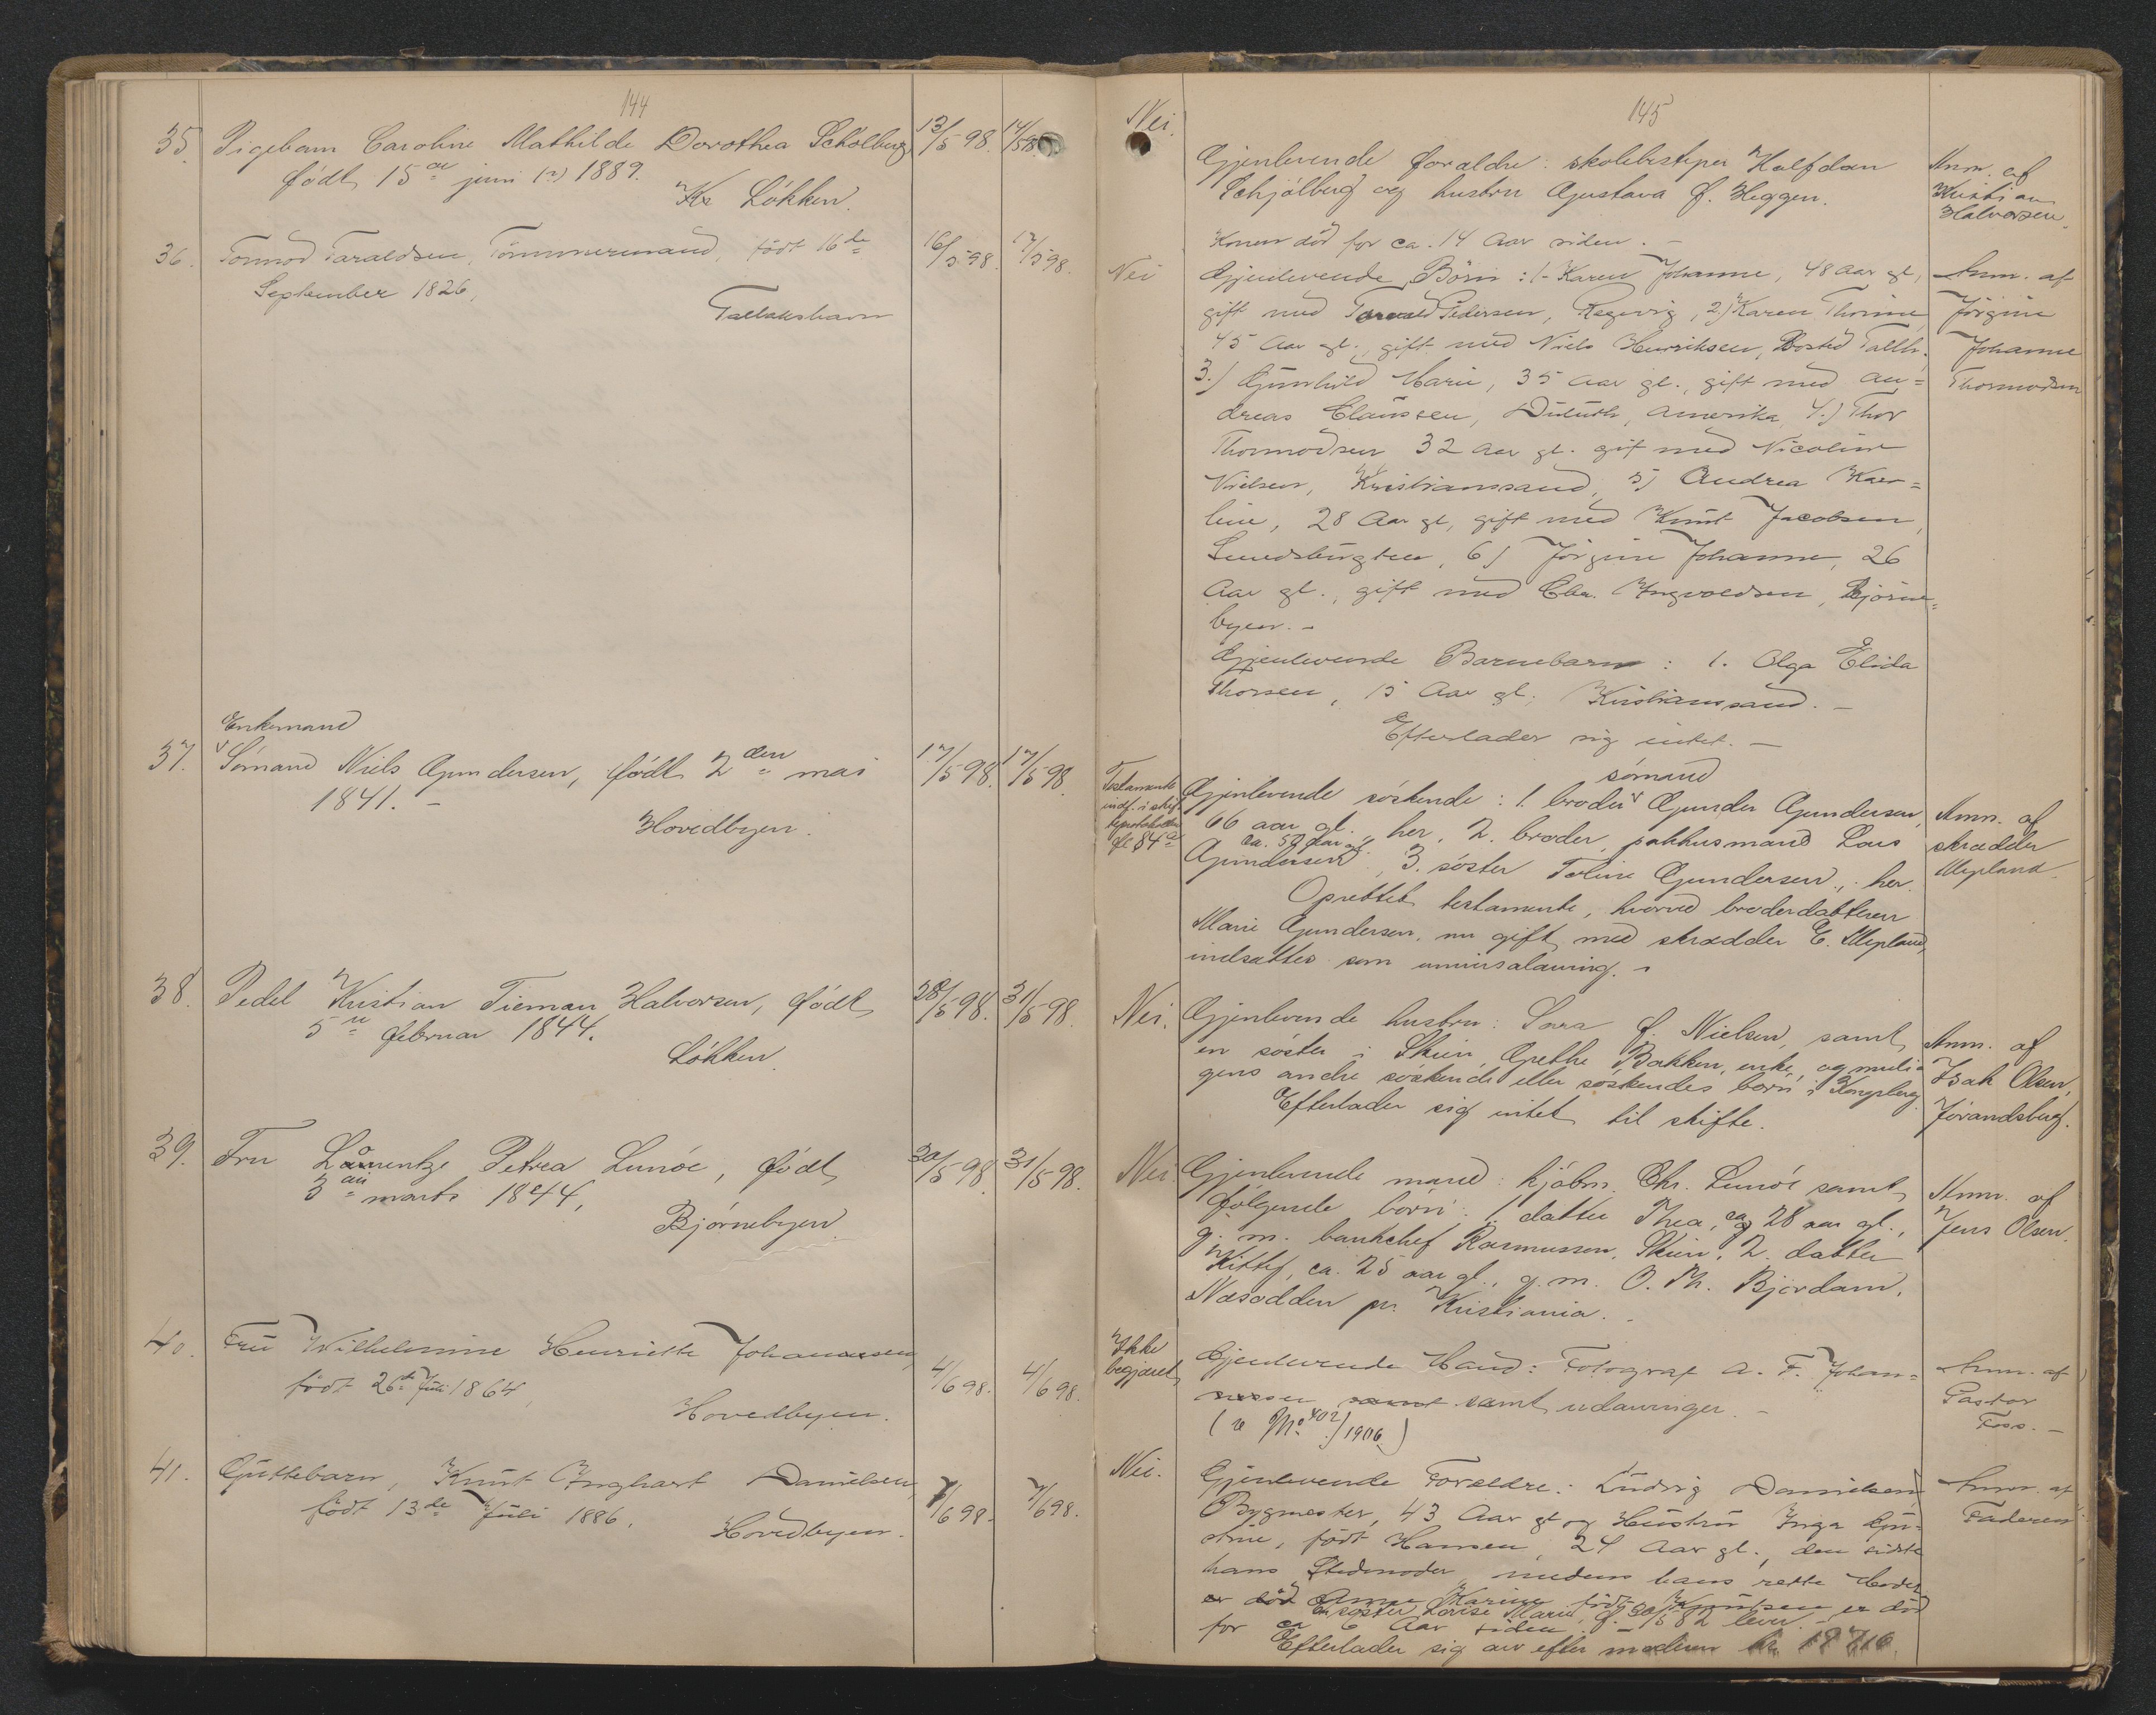 144
35. Pigebarn Caroline Mathilde Dorothea Schölberg 13/5 98. 14/5 98.
født 15de juni 1889.
Kr Løkken.
36. Tormod Taraldsen, Tömmermand, født 16de 16/5 98. 17/5 98.
September 1826,
Tallakshavn
Enkemand
37. Sømand Niels Gundersen, født 2den mai 17/5 98. 17/5 98.
1841. –
Hovedbyen.
38. Pedel Kristian Tieman Halvorsen, født 28/5 98. 31/5 98.
5te februar 1844.
Løkken.
39. Fru Laurentze Petrea Lunöe, født 30/5 98. 31/5 98.
3die marts 1844.
Bjørnebyen.
40. Frü Wilhelmine Henriette Johannesen, 4/6 98. 4/6 98.
født 26de Juli 1864,
Hovedbyen.
41. Guttebarn, Knüt Inghart Danielsen, 7/6 98. 7/6 98.
født 13de Juli 1886.
Hovedbyen.
145
Nei.
Gjenlevende foraldre: skolebestyrer Halfdan Anm. af
Schjölberg og hustru Gustava f. Heggen. Kristian
Halvorsen.
Konen död for ca. 14 Aar siden. –
Nei Gjenlevende Börn: 1. Karen Johanne, 48 Aar gl, Anm. af
gift med Tarald Pedersen, Regevig, 2) Karen Thorine Jörgine
45 Aar gl., gift med Niels Henriksen, Bosted Tallh. Johanne
3.) Günhild Marie, 35 Aar gl., gift med An= Thormodsen
dreas Claüssen, Dülüth, Amerika, 4.) Thor
Thormodsen 32 Aar gl. gift med Nicoline
Nielsen, Kristianssand, 5) Andrea Karo=
line, 28 Aar gl, gift med Knüt Jacobsen,
6) Jörgine Johanne, 26
Aar gl., gift med Chr. Ingvoldsen, Björne=
byen. –
Gjenlevende Barnebarn: 1. Olga Elida
Thorsen, 15 Aar gl, Kristianssand. –
Efterlader sig intet. –
sömand
Testamente
indf. i skif-
teprotokollen
fl 84
Gjenlevende söskende: 1. broder Gunder Gundersen, Anm. af
66 aar gl., her, 2. broder, pakhusmand Lars skrædder
ca. 50 Aar gl.
Gundersen, 3. söster Toline Gundersen, her. Mepland.
Oprettet testamente, hvorved broderdatteren
Marie Gundersen, nu gift med skrædder E. Mepland,
indsattes som universalarving. –
Nei. Gjenlevende hustru: Sara f. Nielsen, samt Anm. af
en söster i Skien, Grethe Bakken, enke, og muli= Isak Olsen,
gens andre söskende eller söskendes börn i Kongsberg. Jörandsberg.
Efterlader sig intet til skifte.
Nei Gjenlevende mand: kjøbm. Chr. Lunöe samt Anm. af
følgende börn: 1. datter Thea, ca 28 aar gl., Jens Olsen.
g. m. bankchef Rasmussen, Skien, 2. datter
Kitty, ca. 25 aar gl., g. m. O. Th. Bjørdam,
Næsodden pr. Kristiania. –
Ikke
begjæret
Gjenlevende Mand: Fotograf A. F. Johan= Anm. af
nesen samt samt udarvinger. – Pastor
(v No 402/1906) Foss. –
Nei. Gjenlevende Foreldre: Lüdvig Danielsen, Anm. af
Bygmester, 43 Aar gl og Hüstrü Inga Gün= Faderen
strine, født Hansen, 24 Aar gl., den sidste
hans Stedmoder, medens hans rette Moder
er död Anna Karine født Knutsen er död
En söster Lovise Marie, f. 30/5 82 lever.
for ca 6 Aar siden. –
Efterlader sig arv efter moderen kr.